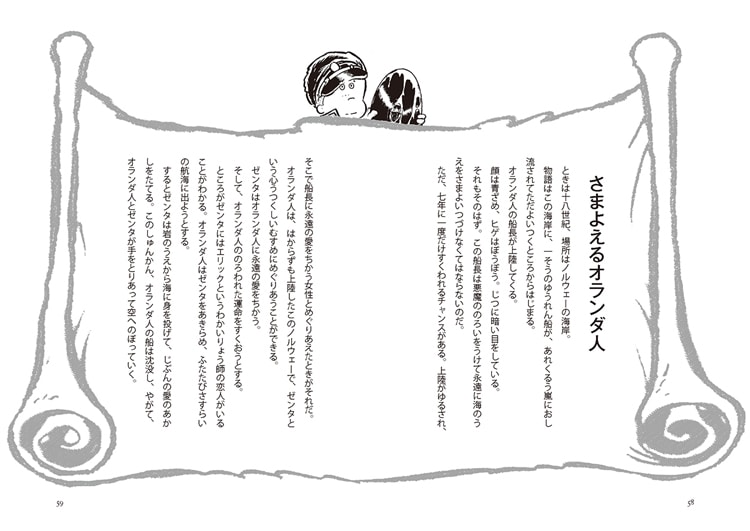 さまよえるオランダ人
ときは十八世紀、場所はノルウェーの海岸。
物語はこの海岸に、一そうのゆうれい船が、あれくるう嵐におし
流されてただよいつくところからはじまる。
オランダ人の船長が上陸してくる。
顔は青ざめ、ヒゲはぼうぼう。じつに暗い目をしている。
それもそのはず。この船長は悪魔ののろいをうけて永遠に海のう
えをさまよいつづけなくてはならないのだ。
ただ、七年に一度だけすくわれるチャンスがある。上陸がゆるされ、
そこで船長に永遠の愛をちかう女性とめぐりあえたときがそれだ。
オランダ人は、はからずも上陸したこのノルウェーで、ゼンタと
いう心うつくしいむすめにめぐりあうことができる。
ゼンタはオランダ人に永遠の愛をちかう。
そして、オランダ人ののろわれた運命をすくおうとする。
ところがゼンタにはエリックというわかいりょう師の恋人がいる
ことがわかる。オランダ人はゼンタをあきらめ、ふたたびさすらい
の航海に出ようとする。
するとゼンタは岩のうえから海に身を投げて、じぶんの愛のあか
しをたてる。このしゅんかん、オランダ人の船は沈没し、やがて、
オランダ人とゼンタが手をとりあって空へのぼっていく。
58
59